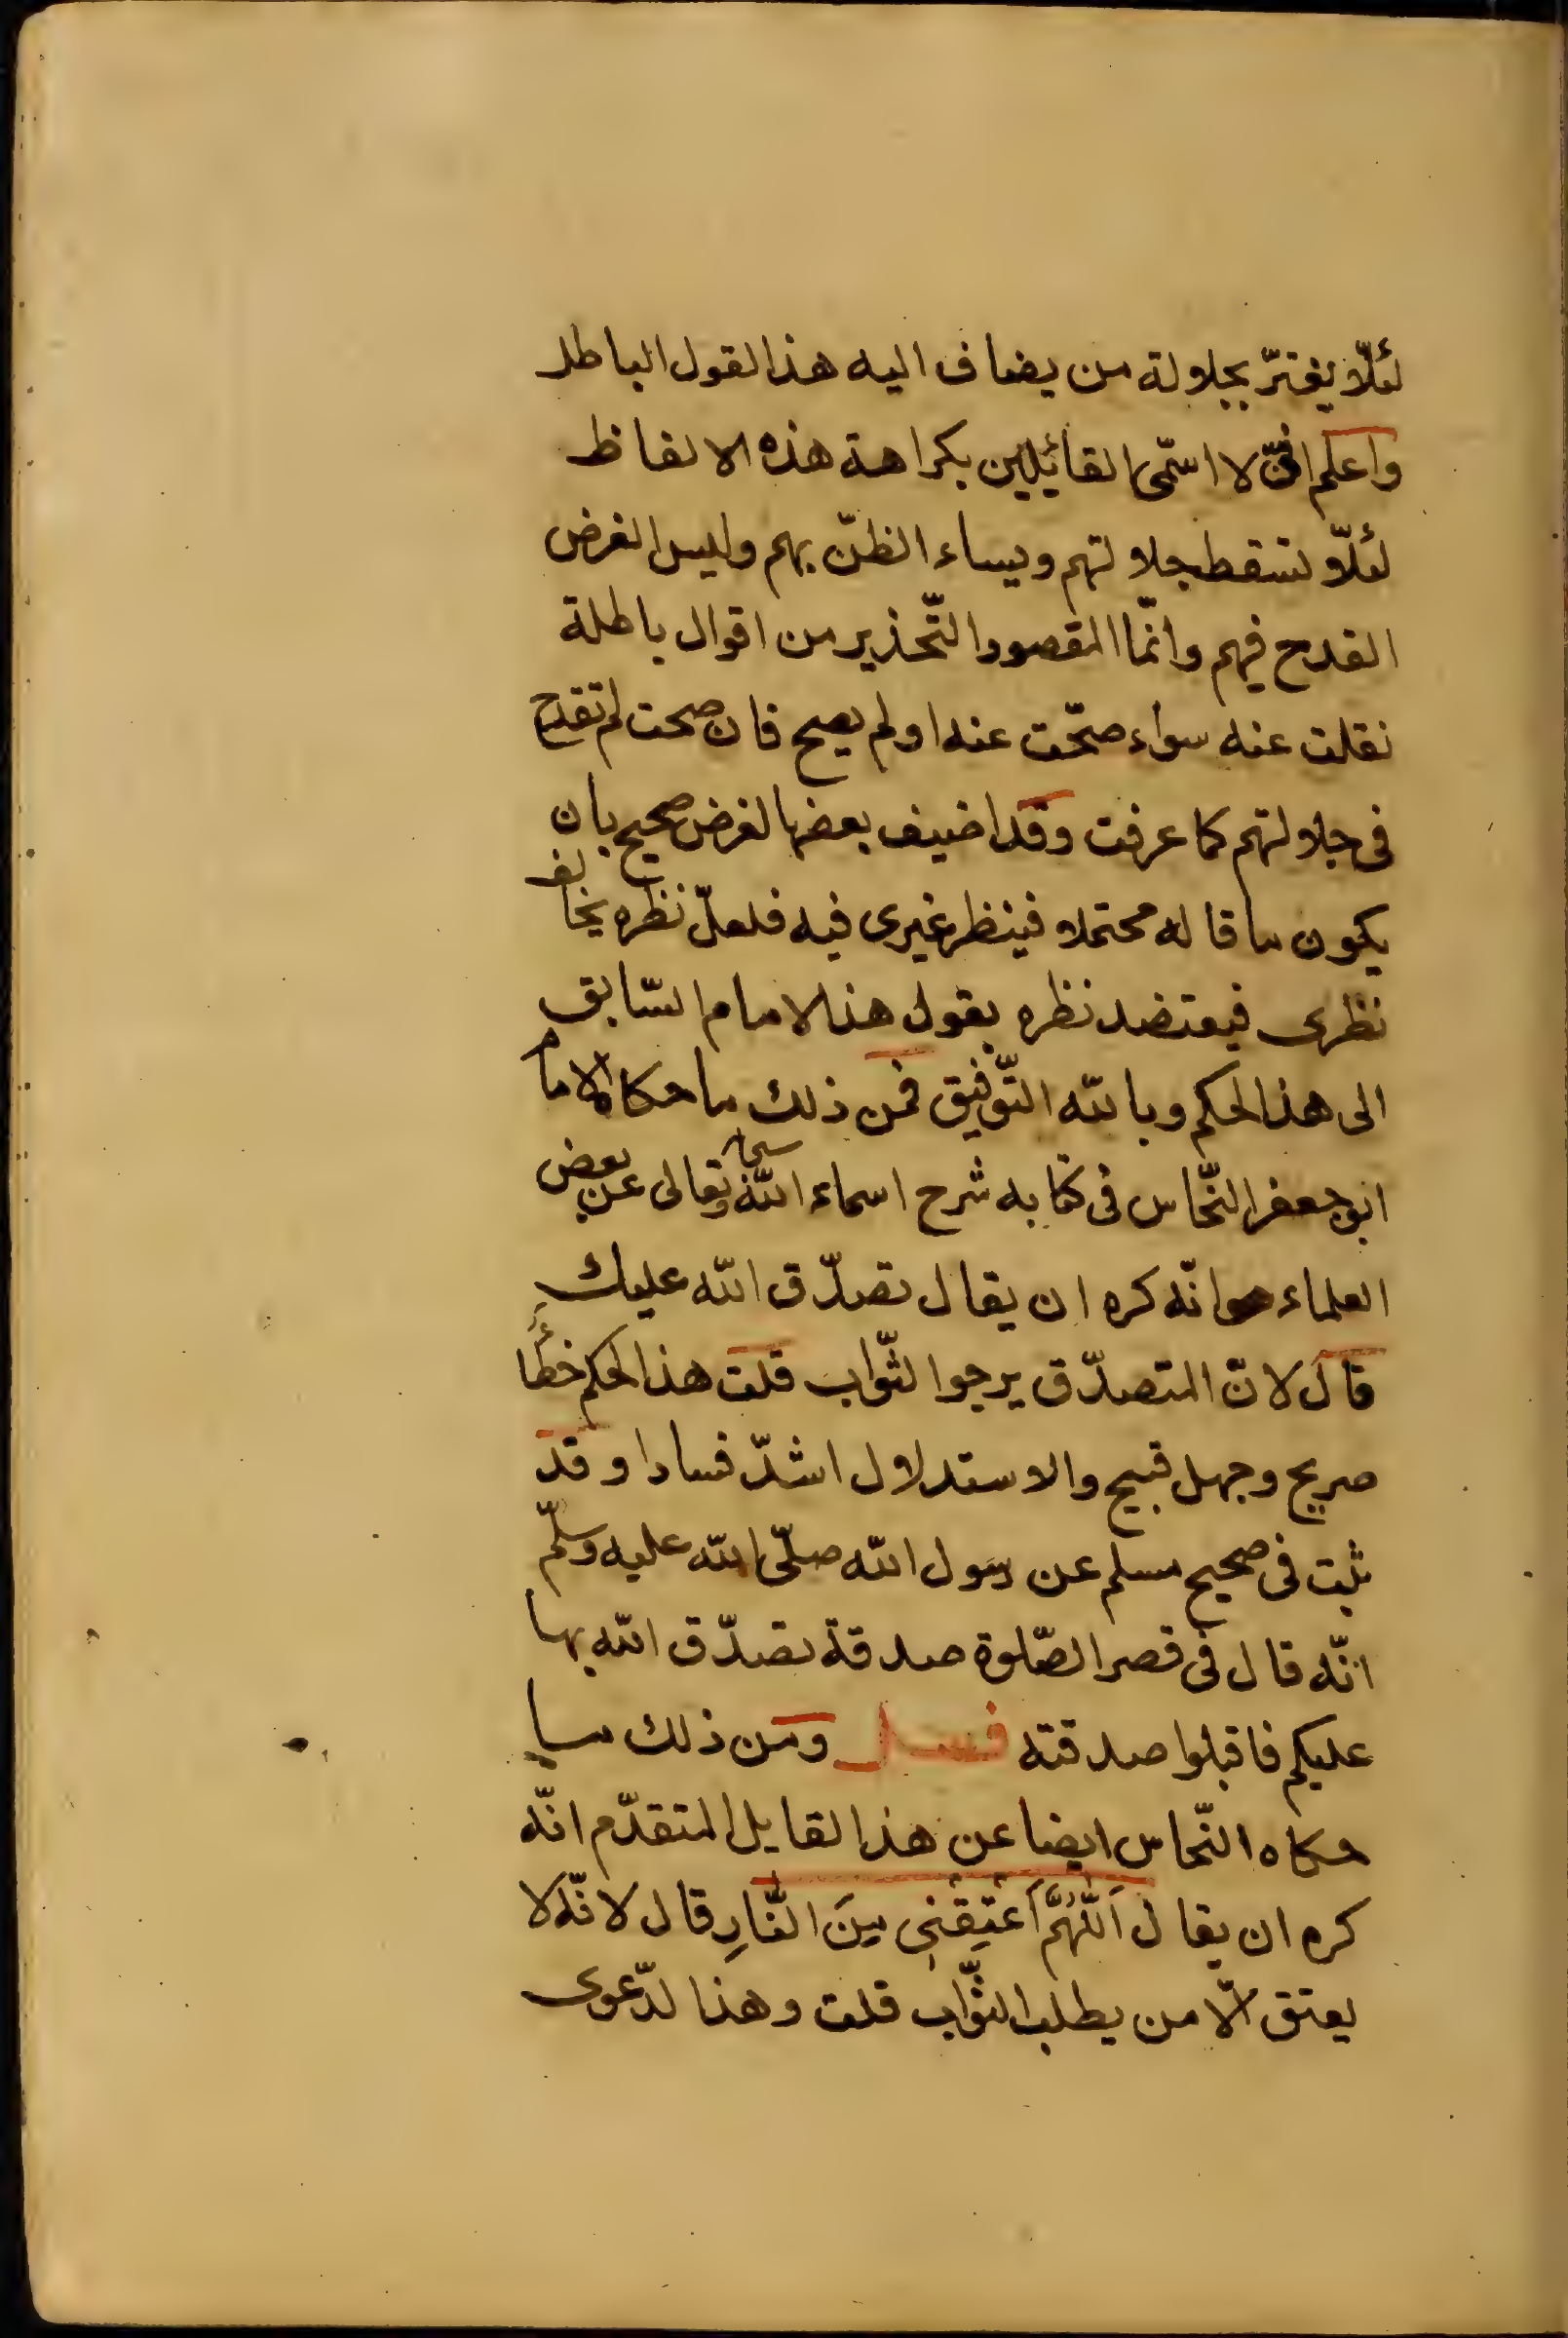 لئلّا يغترّ بجلالة من يضاف اليه هذا القول الباطل
واعلم انّى لا اسمّى القائيلين بكراهة هذه الالفاظ
لئلّا تسقط جلالتهم ويساء الظنّ بهم وليس الغرض
القدح فيهم وانّما المقصود التّحذير من اقوال باطلة
نقلت عنه سواء صحّت عنه او لم يصح فان صحت لم تقدح
فى جلالتهم كما عرفت وقد اضيف بعضها لغرض صحيح بان
يكون ما قاله محتملا فينظر غيرى فيه فلعلّ نظره يخالف
نظرى فيعتضد نظره بقول هذا الامام السّابق
الى هذا الحكم وبالله التّوفيق فمن ذلك ما حكاه الامام
ابو جعفر النّحاس فى كتابه شرح اسماء الله سبحانه وتعالى عن بعض
العلماء انّه كره ان يقال تصدّق الله عليك
قال لانّ المتصدّق يرجوا الثّواب قلت هذا الحكم خطأ
صريح وجهل قبيح والاستدلال اشدّ فسادا وقد
ثبت فى صحيح مسلم عن رسول الله صلّى الله عليه وسلّم
انّه قال فى قصر الصّلوة صدقة تصدّق الله بها
عليكم فاقبلوا صدقته فصل ومن ذلك ما
حكاه النّحاس ايضا عن هذا القايل المتقدّم انّه
كره ان يقال اَللّٰهُمَّ اَعْتِقْنِى مِنَ النَّارِ قال لانّه لا
يعتق الّا من يطلب الثّواب قلت وهذا الدّعوى